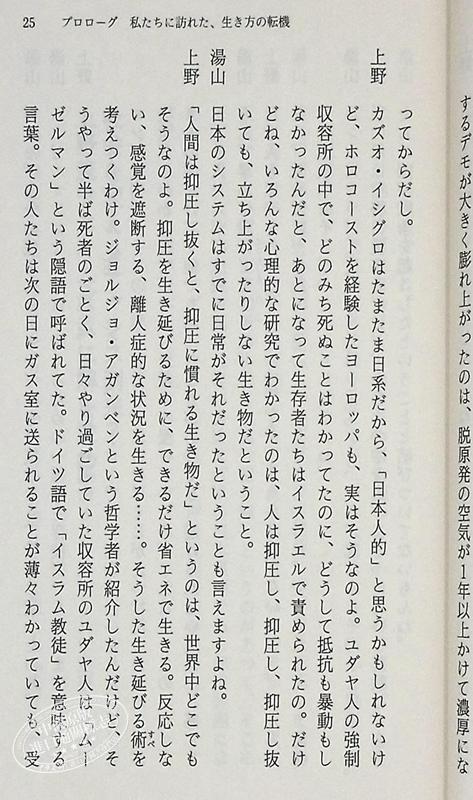 25　プロローグ　私たちに訪れた、生き方の転機
するデモが大きく膨れ上がったのは、脱原発の空気が1年以上かけて濃厚にな
ってからだし。
上野　カズオ・イシグロはたまたま日系だから、「日本人的」と思うかもしれないけ
ど、ホロコーストを経験したヨーロッパも、実はそうなのよ。ユダヤ人の強制
収容所の中で、どのみち死ぬことはわかってたのに、どうして抵抗も暴動もし
なかったんだと、あとになって生存者たちはイスラエルで責められたの。だけ
どね、いろんな心理的な研究でわかったのは、人は抑圧し、抑圧し、抑圧し抜
いても、立ち上がったりしない生き物だということ。
湯山　日本のシステムはすでに日常がそれだったということも言えますよね。
上野　「人間は抑圧し抜くと、抑圧に慣れる生き物だ」というのは、世界中どこでも
そうなのよ。抑圧を生き延びるために、できるだけ省エネで生きる。反応しな
い、感覚を遮断する、離人症的な状況を生きる……。そうした生き延びる術すべを
考えつくわけ。ジョルジョ・アガンベンという哲学者が紹介したんだけど、そ
うやって半ば死者のごとく、日々やり過ごしていた収容所のユダヤ人は「ムー
ゼルマン」という隠語で呼ばれてた。ドイツ語で「イスラム教徒」を意味する
言葉。その人たちは次の日にガス室に送られることが薄々わかっていても、受